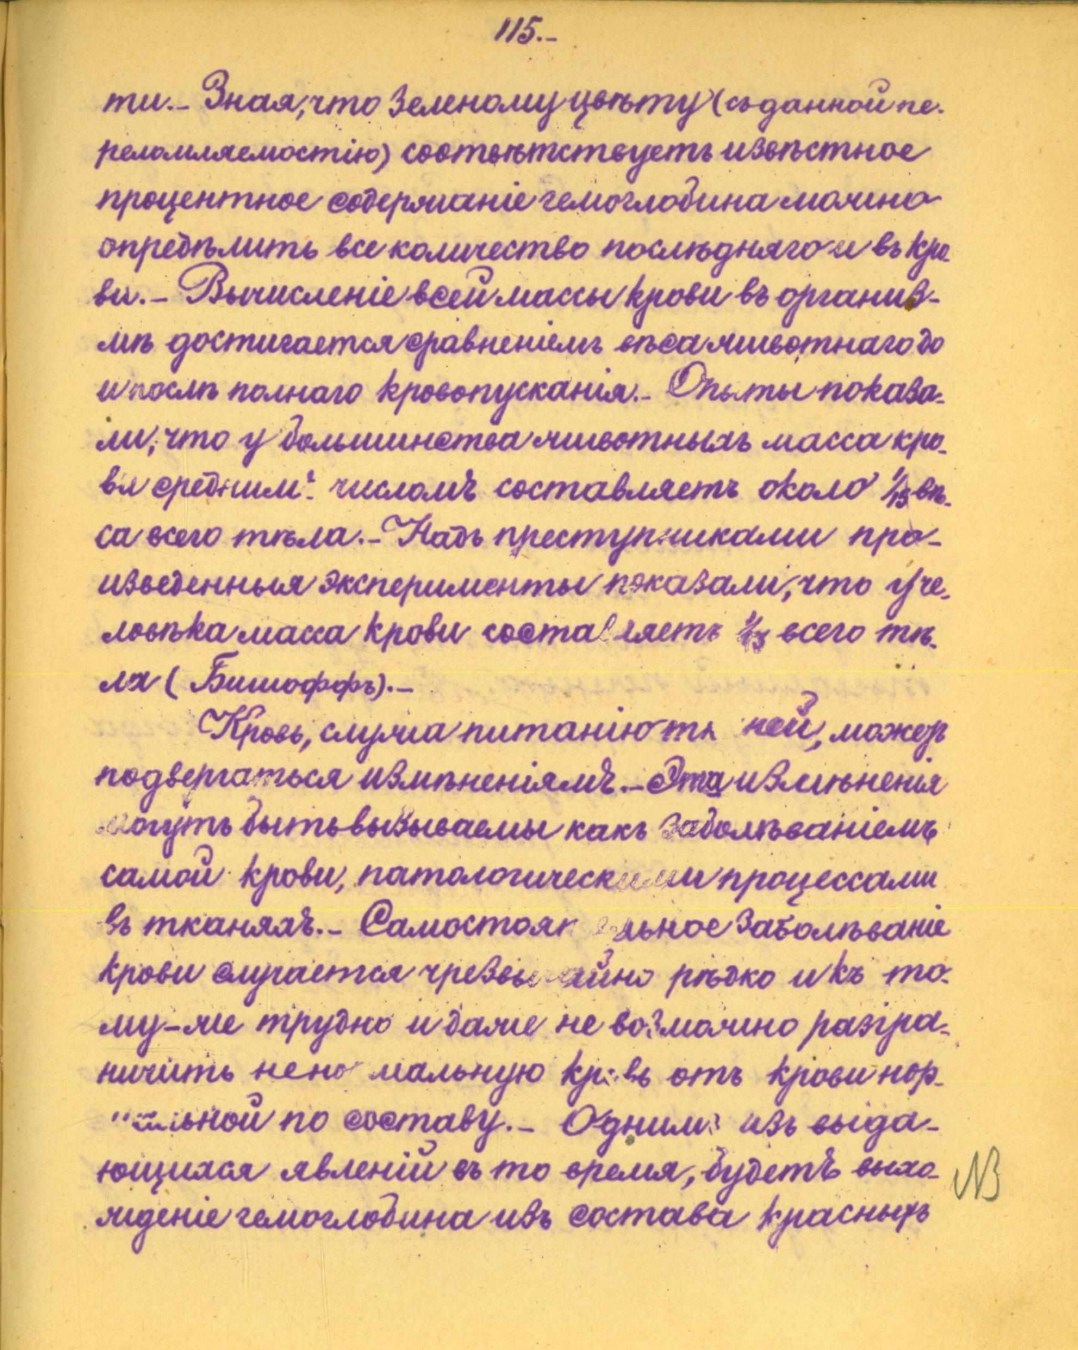 115.–
ти.– Зная, что зеленому цвѣту (съ данной пе-
реломляемостію) соотвѣтствуетъ извѣстное
процентное содержаніе гемоглобина можно
опредѣлить все количество послѣдняго и въ кро
ви.– Вычисленіе всей массы крови въ организ-
мѣ достигается сравненіемъ вѣса животнаго до
и послѣ полнаго кровопусканія.– Опыты показа-
ли, что у большинства животныхъ масса кро-
ви среднимъ числомъ составляетъ около 1/13 вѣ-
са всего тѣла.– Надъ преступниками про-
изведенныя эксперименты показали, что у че-
ловѣка масса крови составляетъ 1/13 всего тѣ-
ла (Бишоффъ).–
Кровь, служа питанію тк ней, можетъ
подвергаться измѣненіямъ.– Эта измѣненія
могутъ быть вызываемы какъ заболѣваніемъ
самой крови, патологическими процессами
въ тканяхъ.– Самостоятельное заболѣваніе
крови случается чрезвычайно рѣдко и къ то-
му-же трудно и даже не возможно разгра-
ничить ненормальную кровь отъ крови нор-
мальной по составу.– Однимъ изъ выда-
ющихся явленій въ то время, будетъ выхо-
жденіе гемоглобина изъ состава красныхъ
NB